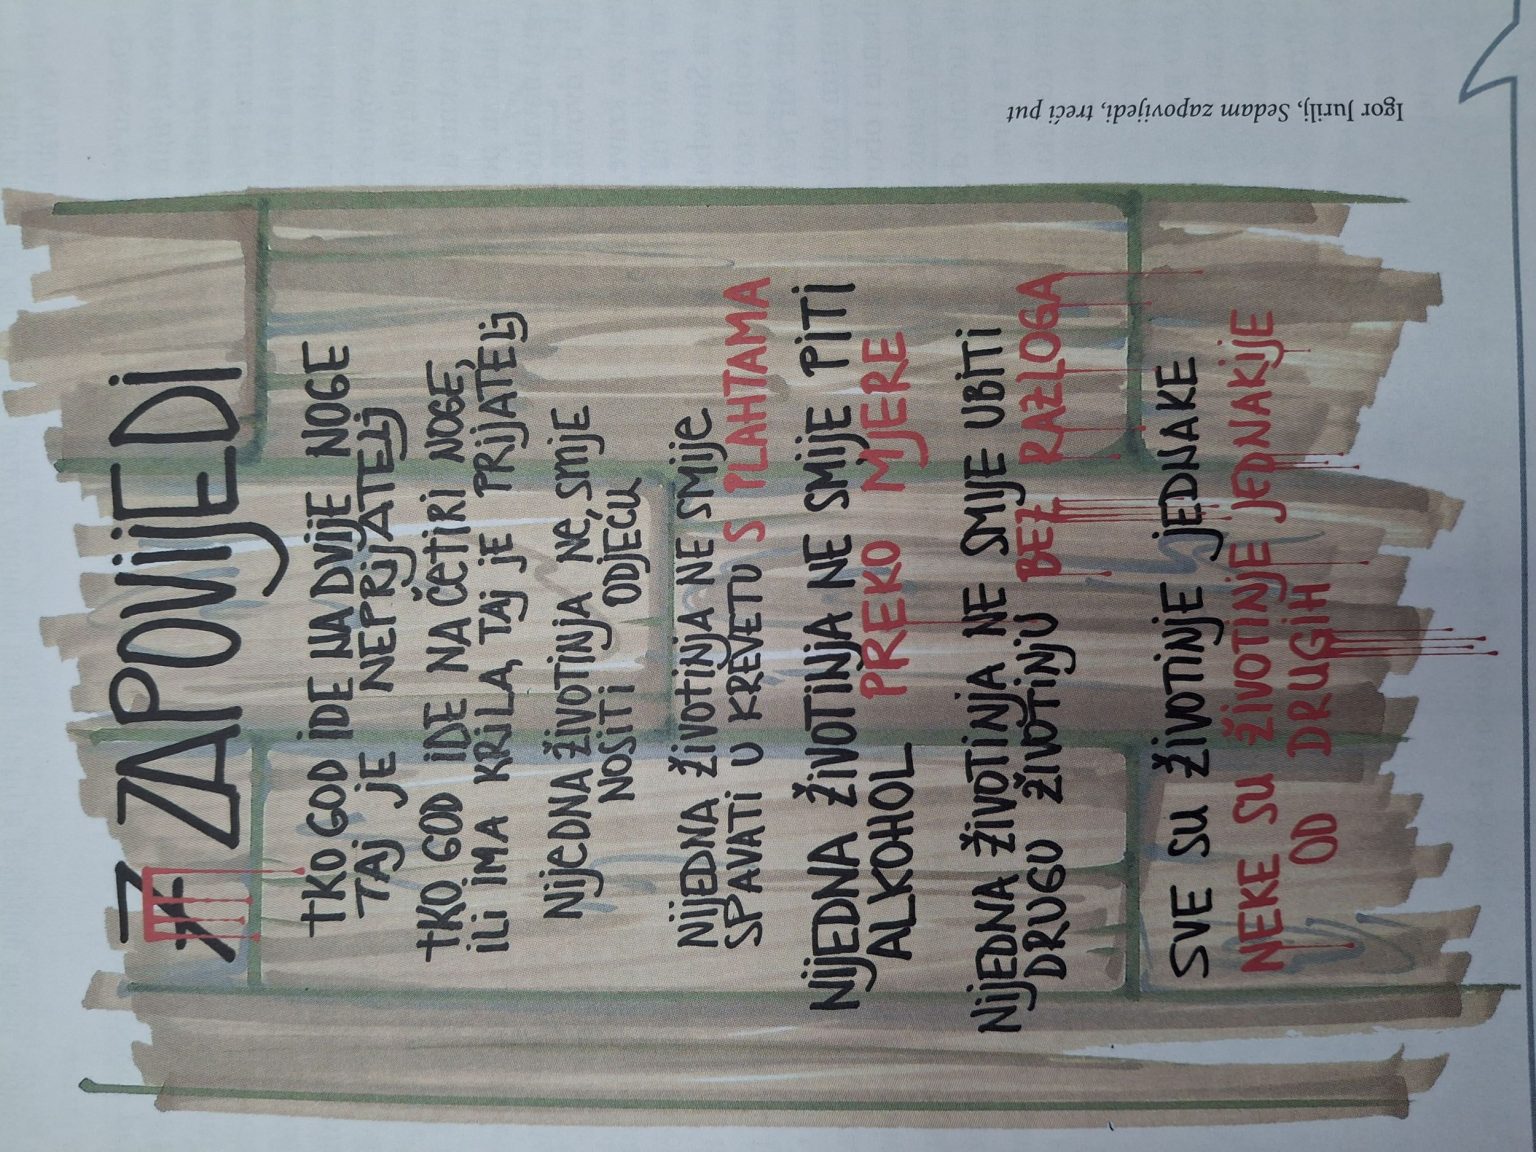 7 ZAPOVIJEDI
TKO GOD IDE NA DVIJE NOGE
TAJ JE NEPRIJATELJ
TKO GOD IDE NA ČETIRI NOGE,
ILI IMA KRILA, TAJ JE PRIJATELJ
NIJEDNA ŽIVOTINJA NE SMIJE
NOSITI ODJEĆU
NIJEDNA ŽIVOTINJA NE SMIJE
SPAVATI U KREVETU S PLAHTAMA
NIJEDNA ŽIVOTINJA NE SMIJE PITI
ALKOHOL PREKO MJERE
NIJEDNA ŽIVOTINJA NE SMIJE UBITI
DRUGU ŽIVOTINJU BEZ RAZLOGA
SVE SU ŽIVOTINJE JEDNAKE
NEKE SU ŽIVOTINJE JEDNAKIJE
OD DRUGIH
Igor Jurilj, Sedam zapovijedi, treći put